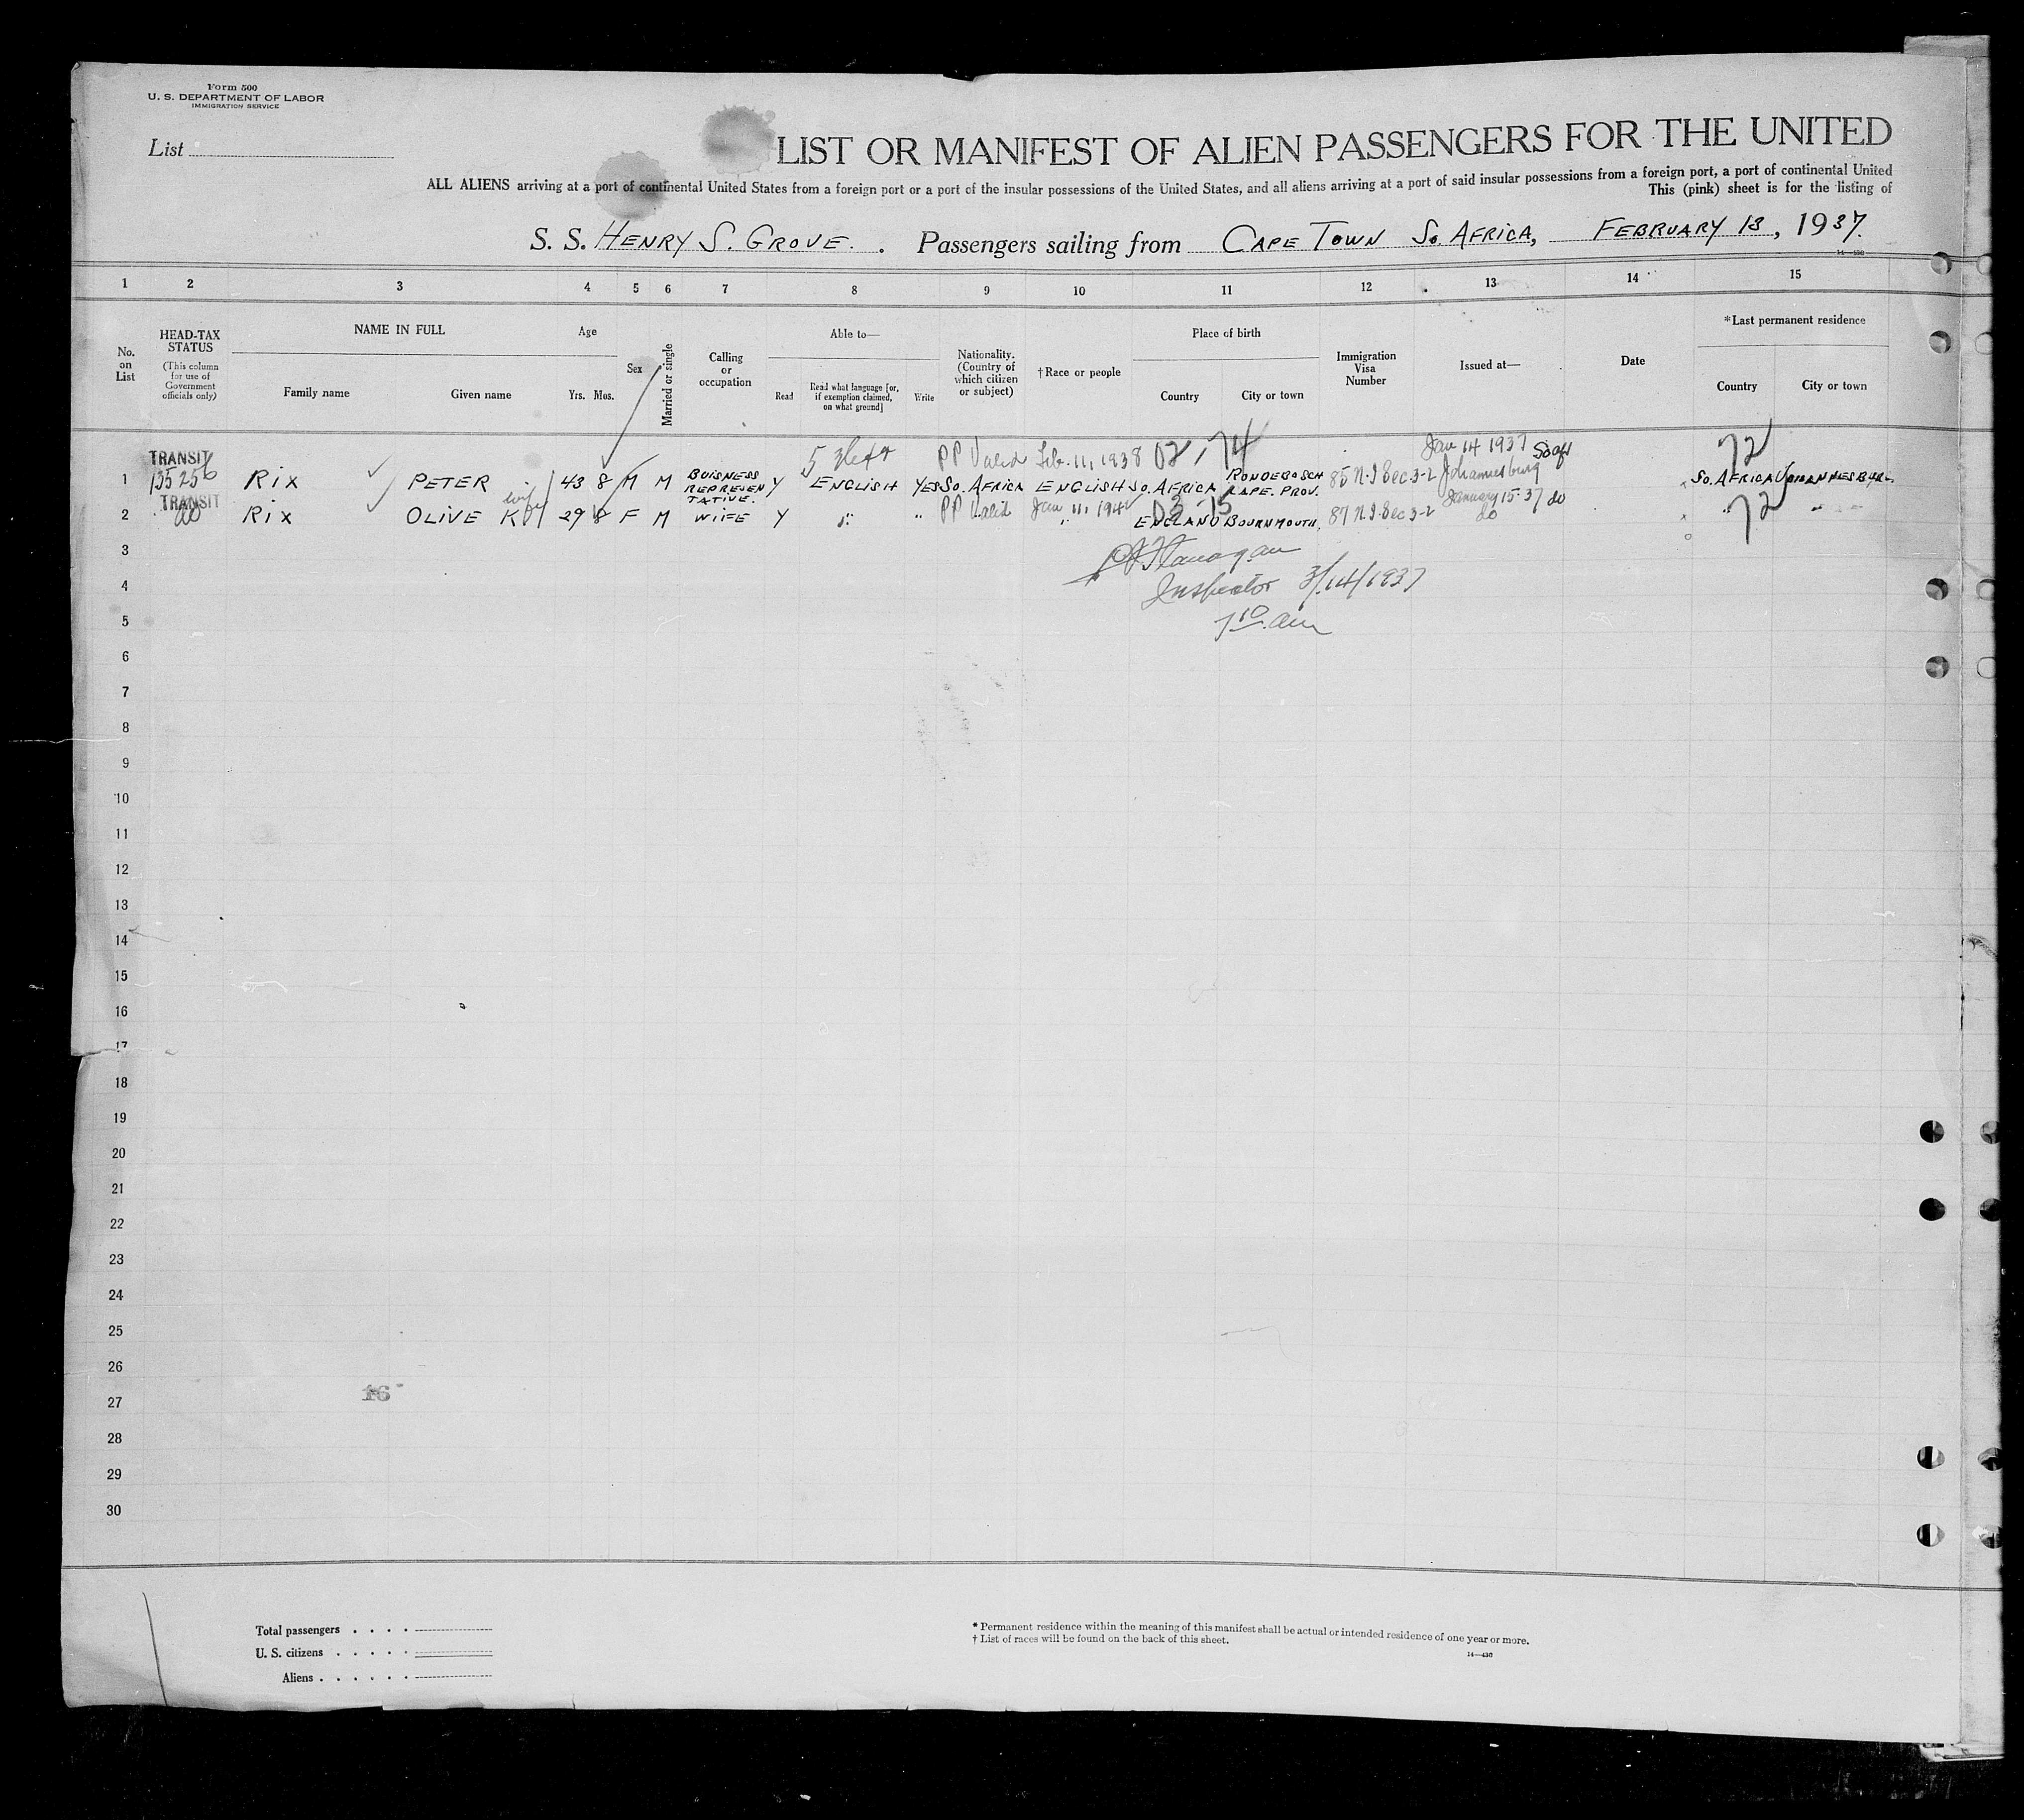 Form 500
U. S. DEPARTMENT OF LABOR
IMMIGRATION SERVICE
List
LIST OR MANIFEST OF ALIEN PASSENGERS FOR THE UNITED
ALL ALIENS arriving at a port of continental United States from a foreign port or a port of the insular possessions of the United States, and all aliens arriving at a port of said insular possessions from a foreign port, a port of continental United
This (pink) sheet is for the listing of
S. S. HENRY S. GROVE. Passengers sailing from CAPE TOWN So. AFRICA, FEBRUARY 13, 1937.
14—430
1 2 3 4 5 6 7 8 9 10 11 12 13 14 15
No. on List
HEAD-TAX STATUS
(This column for use of Government officials only)
NAME IN FULL
Family name Given name
Age
Yrs. Mos.
Sex
Married or single
Calling or occupation
Able to—
Read
Read what language [or, if exemption claimed, on what ground]
Write
Nationality. (Country of which citizen or subject)
†Race or people
Place of birth
Country City or town
Immigration Visa Number
Issued at—
Date
*Last permanent residence
Country City or town
PP Valid Feb. 11, 1938 02 , 74 Jan 14 1937 72
1 TRANSIT 135256 RIX PETER 43 8 M M BUISNESS REPRESENTATIVE. Y ENGLISH YES So. AFRICA ENGLISH So. AFRICA RONDEBOSCH CAPE. PROV. 85 N.I Sec 3-2 Johannesburg So. AFRICA JOHANNESBURG
PP Valid Jan 11, 194 03 - 15 January 15-37 do 72
2 TRANSIT do RIX OLIVE K wife 29 8 F M WIFE Y " " " ENGLAND BOURNMOUTH. 87 N.I Sec 3-2 do "
3
4
5
Flanagan
Inspector 3/14/1937
7 10 am
6
7
8
9
10
11
12
13
14
15
16
17
18
19
20
21
22
23
24
25
26
27
28
29
30
16
Total passengers . . . .
U. S. citizens . . . . .
Aliens . . . . . .
* Permanent residence within the meaning of this manifest shall be actual or intended residence of one year or more.
† List of races will be found on the back of this sheet.
14—430